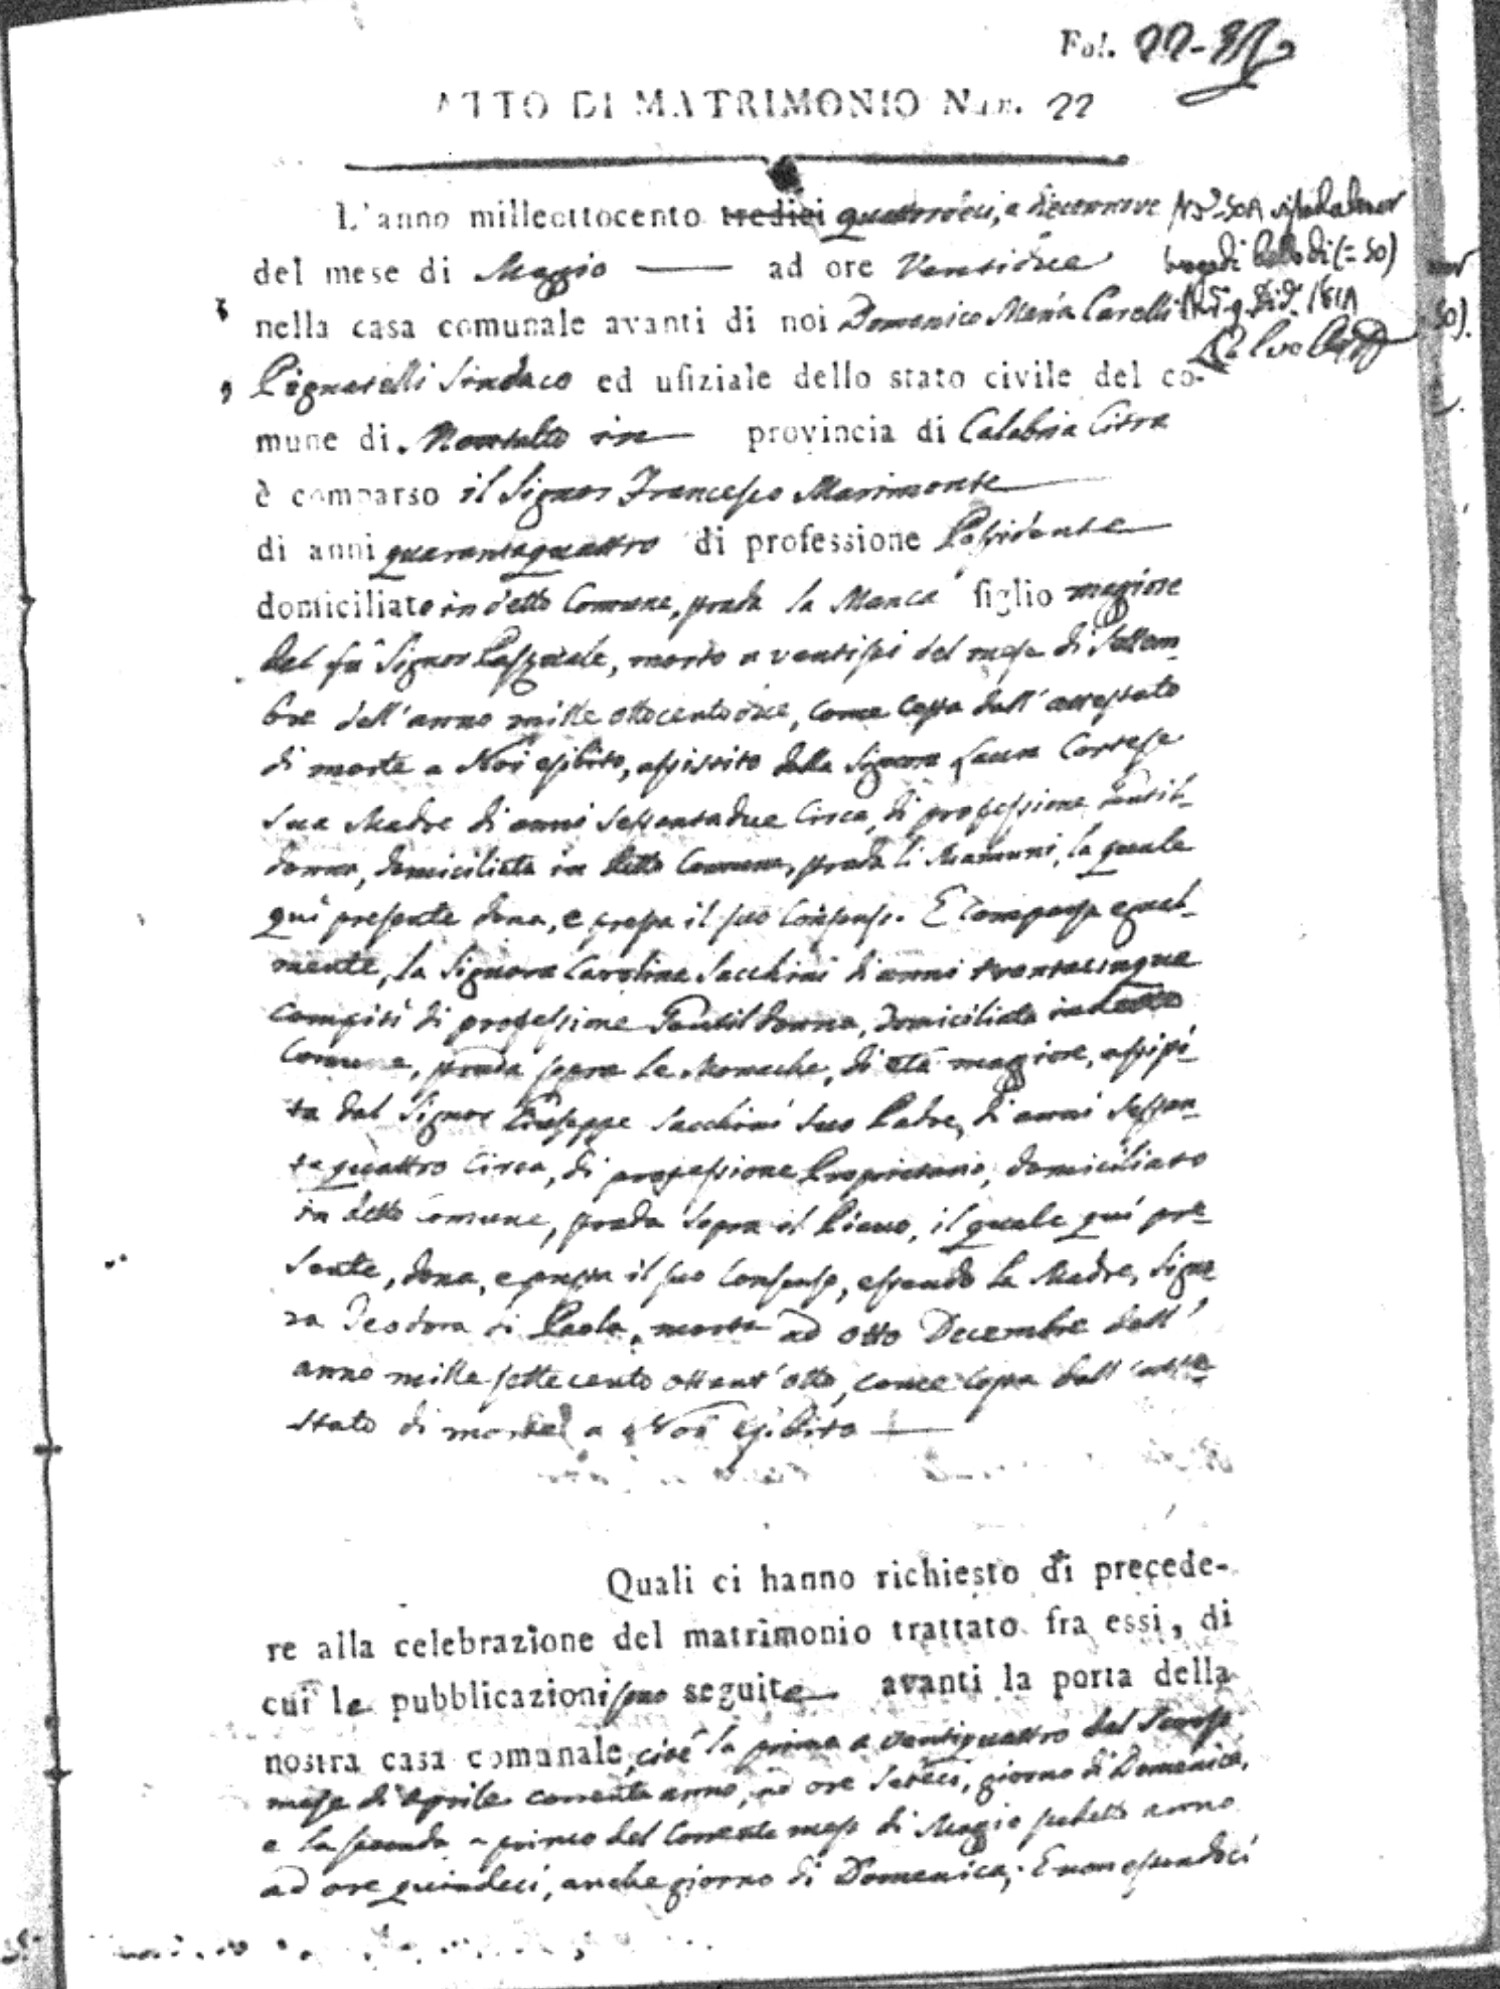 Fol. 22-
ATTO DI MATRIMONIO Num. 22
L'anno milleottocento tredici quattordici, a diecennove
del mese di Maggio ad ore Ventidue
nella casa comunale avanti di noi Domenico Maria Carelli
Pignatelli Sindaco ed ufiziale dello stato civile del co-
mune di Montalto in provincia di Calabria Citra
è comparso il Signor Francesco Marimonte
di anni quarantaquattro di professione Possidente
domiciliato in detto Comune, strada la Manca figlio magiore
del fù Signor Pasquale, morto a ventisei del mese di Settem-
bre dell'anno mille ottocento due, come costa dall'attestato
di morte a Noi esibito, assistito dalla Signora Laura Cortese
sua Madre di anni sessantadue circa, di professione Gentil-
donna, domiciliata in detto Comune, strada li Mamuni, la quale
quì presente dona, e presta il suo consenso. E comparsa egual-
mente, la Signora Carolina Sacchini di anni trentacinque
compiti di professione Gentildonna, domiciliata in detto
Comune, strada sopra le Monache, di età maggiore, assisti-
ta dal Signor Giuseppe Sacchini suo Padre, di anni sessan-
ta quattro circa, di professione Proprietario, domiciliato
in detto Comune, strada sopra il Piano, il quale quì pre-
sente, dona, e presta il suo consenso, essendo la Madre, Signo
ra Teodora di Paola, morta ad otto Decembre dell'
anno mille settecento ottant'otto, come costa dall'atte-
stato di morte a Noi esibito
Quali ci hanno richiesto di precede-
re alla celebrazione del matrimonio trattato fra essi, di
cui le pubblicazioni sono seguite avanti la porta della
nostra casa comunale, cioè la prima a ventiquattro del scorso
mese di Aprile corrente anno, ad ore sedeci, giorno di Domenica,
e la seconda a primo del corrente mese di Maggio sudetto anno
ad ore quindeci, anche giorno di Domenica; E non essendoci